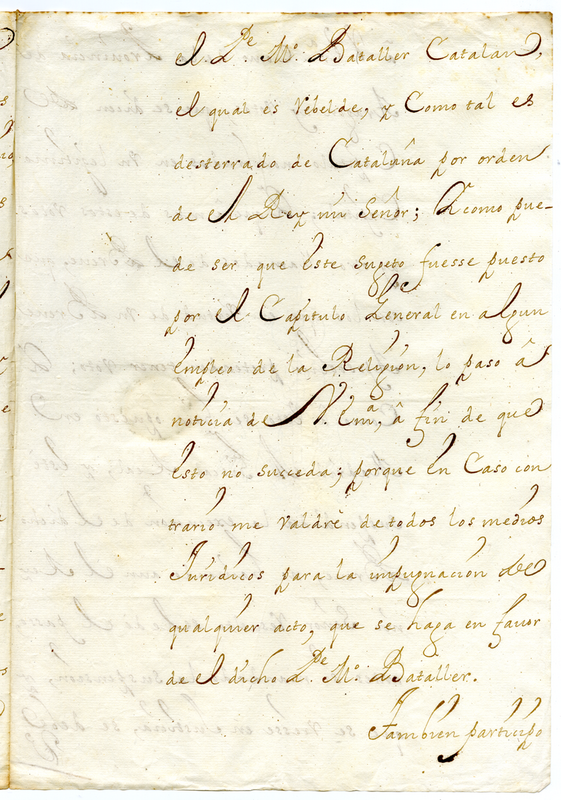 el P.e M.o Bataller Catalan,
el qual es rebelde, y Como tal es
desterrado de Cataluña por orden
de el Rey nũ Señor; Y como pue-
de ser que este sugeto fuesse puesto
por el Capitulo General en algun
empleo de la Religion, lo paso â
noticia de V. Em.a, â fin de que
esto no succeda; porque en Caso con
trario me valdrè de todos los medios
Juridicos para la impugnacion de
qualquier acto, que se haga en favor
de el dicho P.e M.o Bataller.
Tambien participo